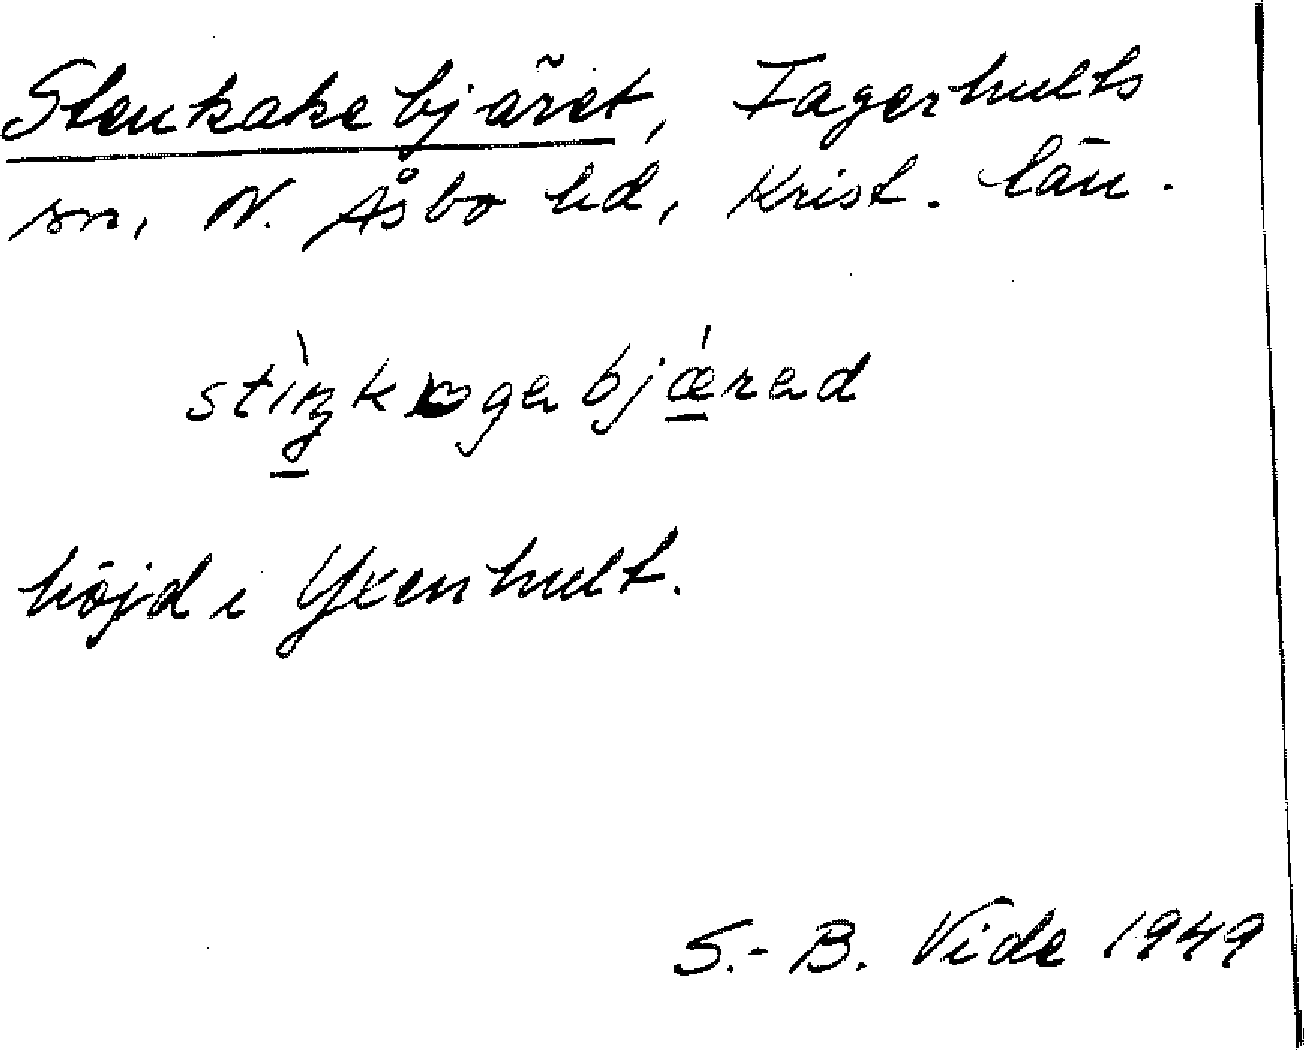 Stenkakebjäret, Fagerhults
sn, N. Åsbo hd, Krist. län.
höjd i Yxenhult.
S.-B. Vide 1949